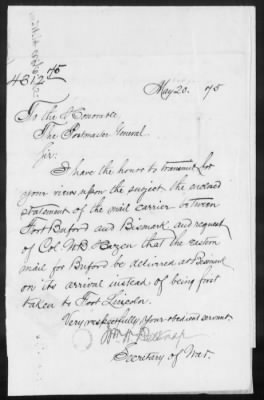 4312 75
May 20. 75
To the Honorable
The Postmaster General
Sir:
I have the honor to transmit for
your views upon the subject the enclosed
statement of the mail carrier between
Fort Buford and Bismark and request
of Col. WB Hazen that the eastern
mail for Buford be delivered at Bismark
on its arrival instead of being first
taken to Fort Lincoln.
Very respectfully your obedient servant
Wm W Belknap
Secretary of War.